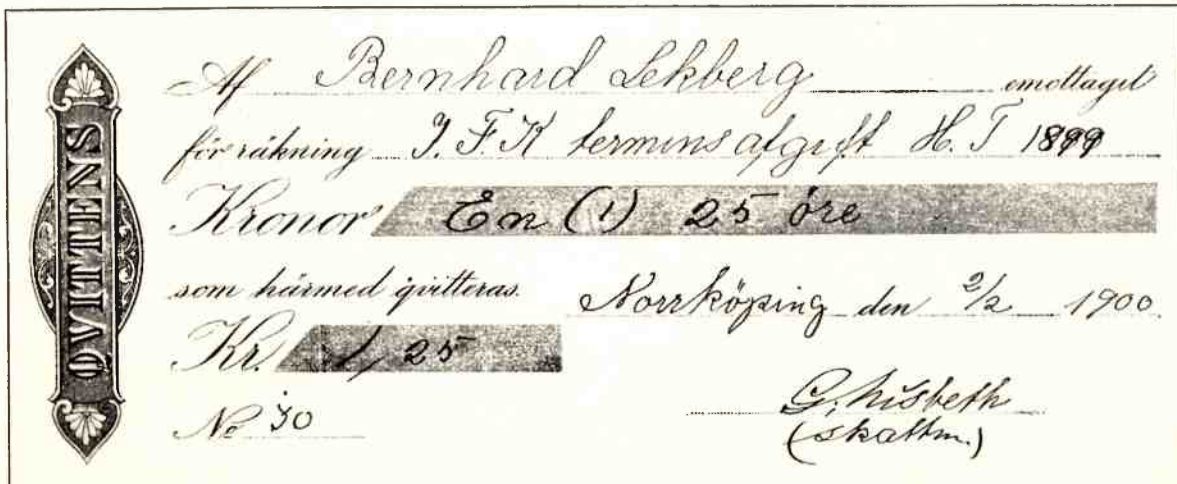 QVITTENS
Af Bernhard Lekberg emottaget
för räkning I. F. K terminsafgift H. T 1899
Kronor En (1) 25 öre
som härmed qvitteras. Norrköping den 2/2 1900.
Kr. 1,25
No 30
G. Nisbeth
(skattm.)